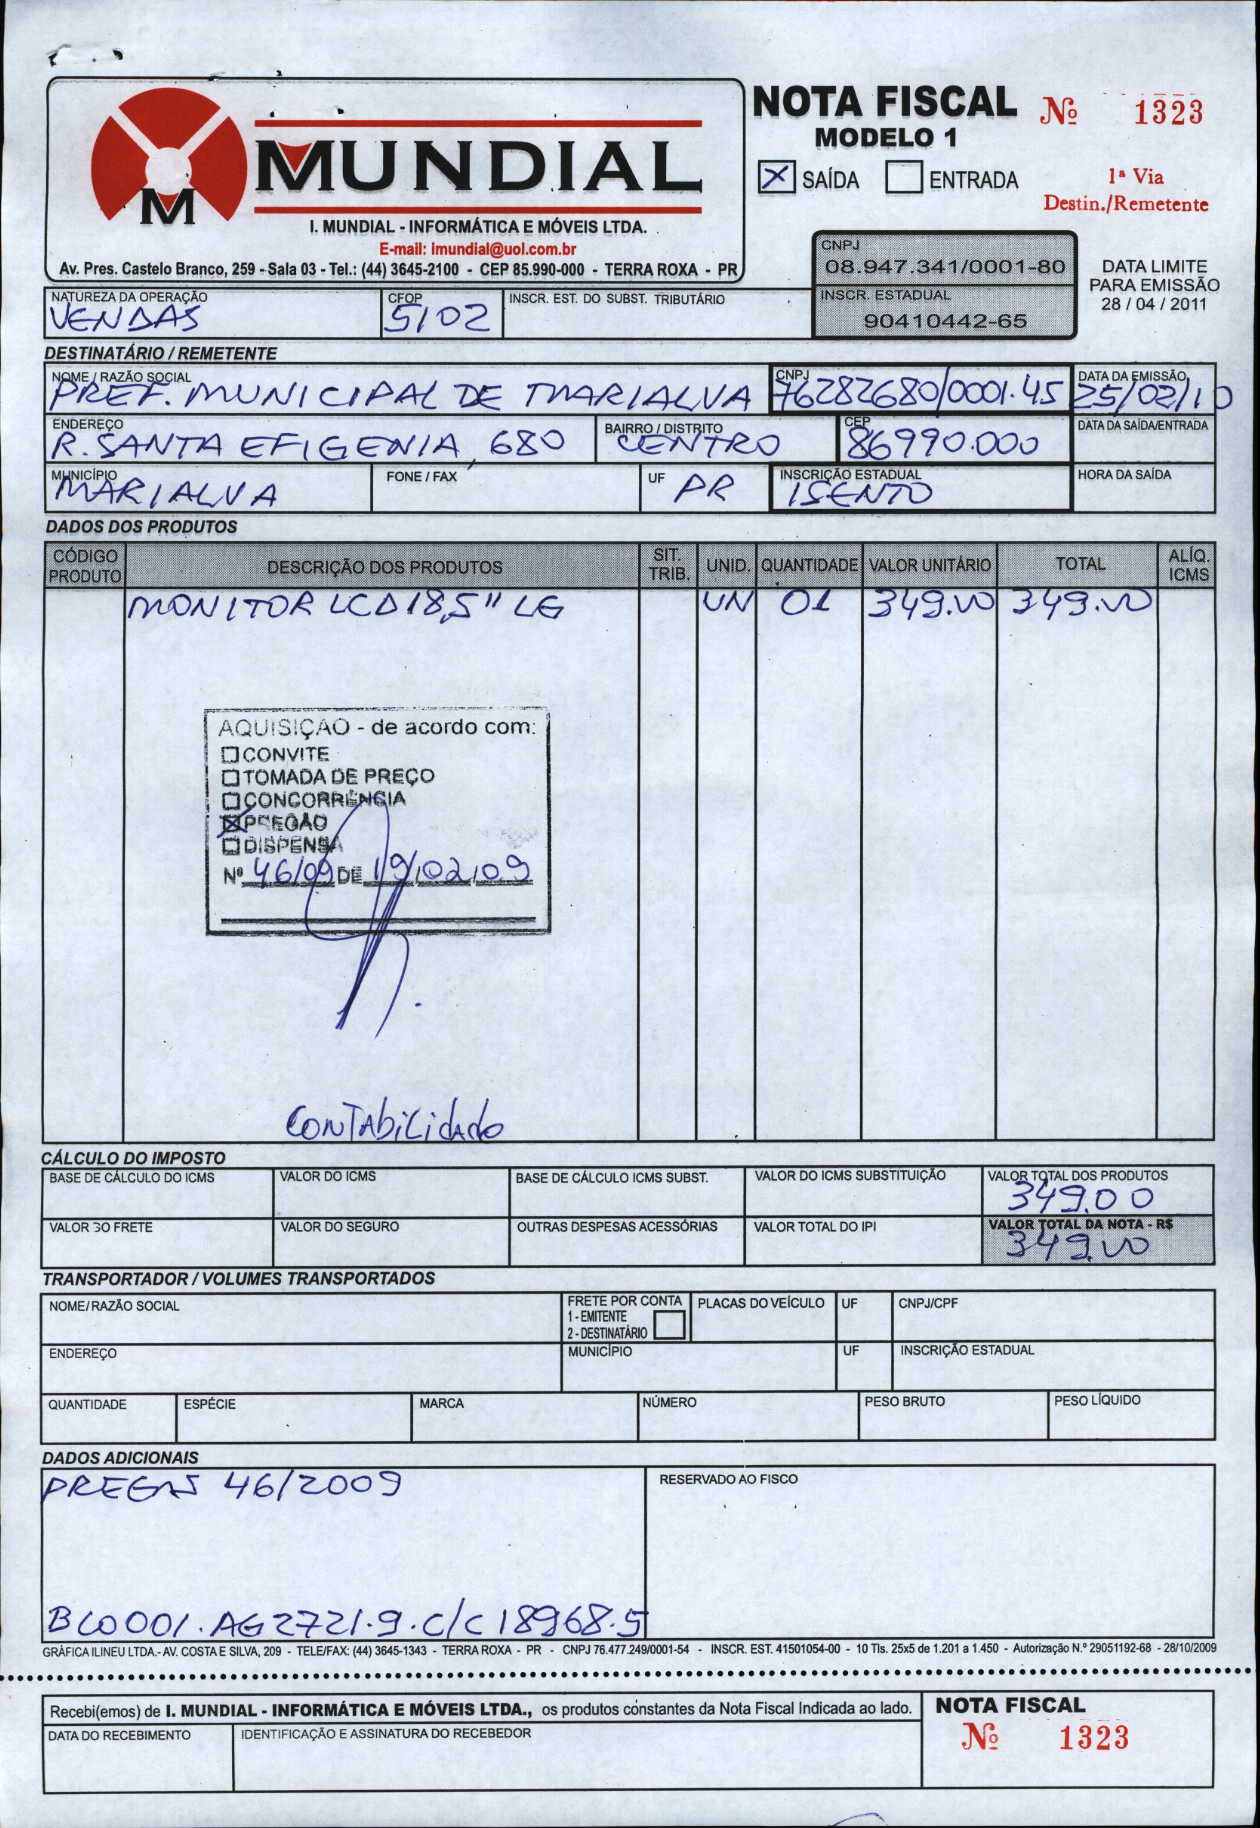 MUNDIAL
M
I. MUNDIAL - INFORMÁTICA E MÓVEIS LTDA.
E-mail: imundial@uol.com.br
Av. Pres. Castelo Branco, 259 - Sala 03 - Tel.: (44) 3645-2100 - CEP 85.990-000 - TERRA ROXA - PR
NOTA FISCAL Nº 1323
MODELO 1
X SAÍDA ENTRADA
1ª Via
Destin./Remetente
CNPJ
08.947.341/0001-80
INSCR. ESTADUAL
90410442-65
DATA LIMITE
PARA EMISSÃO
28 / 04 / 2011
NATUREZA DA OPERAÇÃO CFOP INSCR. EST. DO SUBST. TRIBUTÁRIO
VENDAS 5102
DESTINATÁRIO / REMETENTE
NOME / RAZÃO SOCIAL CNPJ DATA DA EMISSÃO
PREF. MUNICIPAL DE MARIALVA 76282680/0001.45 25/02/10
ENDEREÇO BAIRRO / DISTRITO CEP DATA DA SAÍDA/ENTRADA
R. SANTA EFIGENIA, 680 CENTRO 86990.000
MUNICÍPIO FONE / FAX UF INSCRIÇÃO ESTADUAL HORA DA SAÍDA
MARIALVA PR ISENTO
DADOS DOS PRODUTOS
CÓDIGO PRODUTO DESCRIÇÃO DOS PRODUTOS SIT. TRIB. UNID. QUANTIDADE VALOR UNITÁRIO TOTAL ALÍQ. ICMS
MONITOR LCD 18,5" LG UN 01 349.00 349.00
AQUISIÇÃO - de acordo com:
CONVITE
TOMADA DE PREÇO
CONCORRÊNCIA
X PREGÃO
DISPENSA
Nº 46/09 DE 19/02/09
CONTAbiLidAdo
CÁLCULO DO IMPOSTO
BASE DE CÁLCULO DO ICMS VALOR DO ICMS BASE DE CÁLCULO ICMS SUBST. VALOR DO ICMS SUBSTITUIÇÃO VALOR TOTAL DOS PRODUTOS
349.00
VALOR DO FRETE VALOR DO SEGURO OUTRAS DESPESAS ACESSÓRIAS VALOR TOTAL DO IPI VALOR TOTAL DA NOTA - R$
349.00
TRANSPORTADOR / VOLUMES TRANSPORTADOS
NOME/RAZÃO SOCIAL FRETE POR CONTA PLACAS DO VEÍCULO UF CNPJ/CPF
1 - EMITENTE
2 - DESTINATÁRIO
ENDEREÇO MUNICÍPIO UF INSCRIÇÃO ESTADUAL
QUANTIDADE ESPÉCIE MARCA NÚMERO PESO BRUTO PESO LÍQUIDO
DADOS ADICIONAIS
PREGAS 46/2009 RESERVADO AO FISCO
BCO 001. AG 2721.9. C/C 18968.5
GRÁFICA ILINEU LTDA. - AV. COSTA E SILVA, 209 - TELE/FAX: (44) 3645-1343 - TERRA ROXA - PR - CNPJ 76.477.249/0001-54 - INSCR. EST. 41501054-00 - 10 Tls. 25x5 de 1.201 a 1.450 - Autorização N.º 29051192-68 - 28/10/2009
Recebi(emos) de I. MUNDIAL - INFORMÁTICA E MÓVEIS LTDA., os produtos constantes da Nota Fiscal Indicada ao lado. NOTA FISCAL
DATA DO RECEBIMENTO IDENTIFICAÇÃO E ASSINATURA DO RECEBEDOR Nº 1323